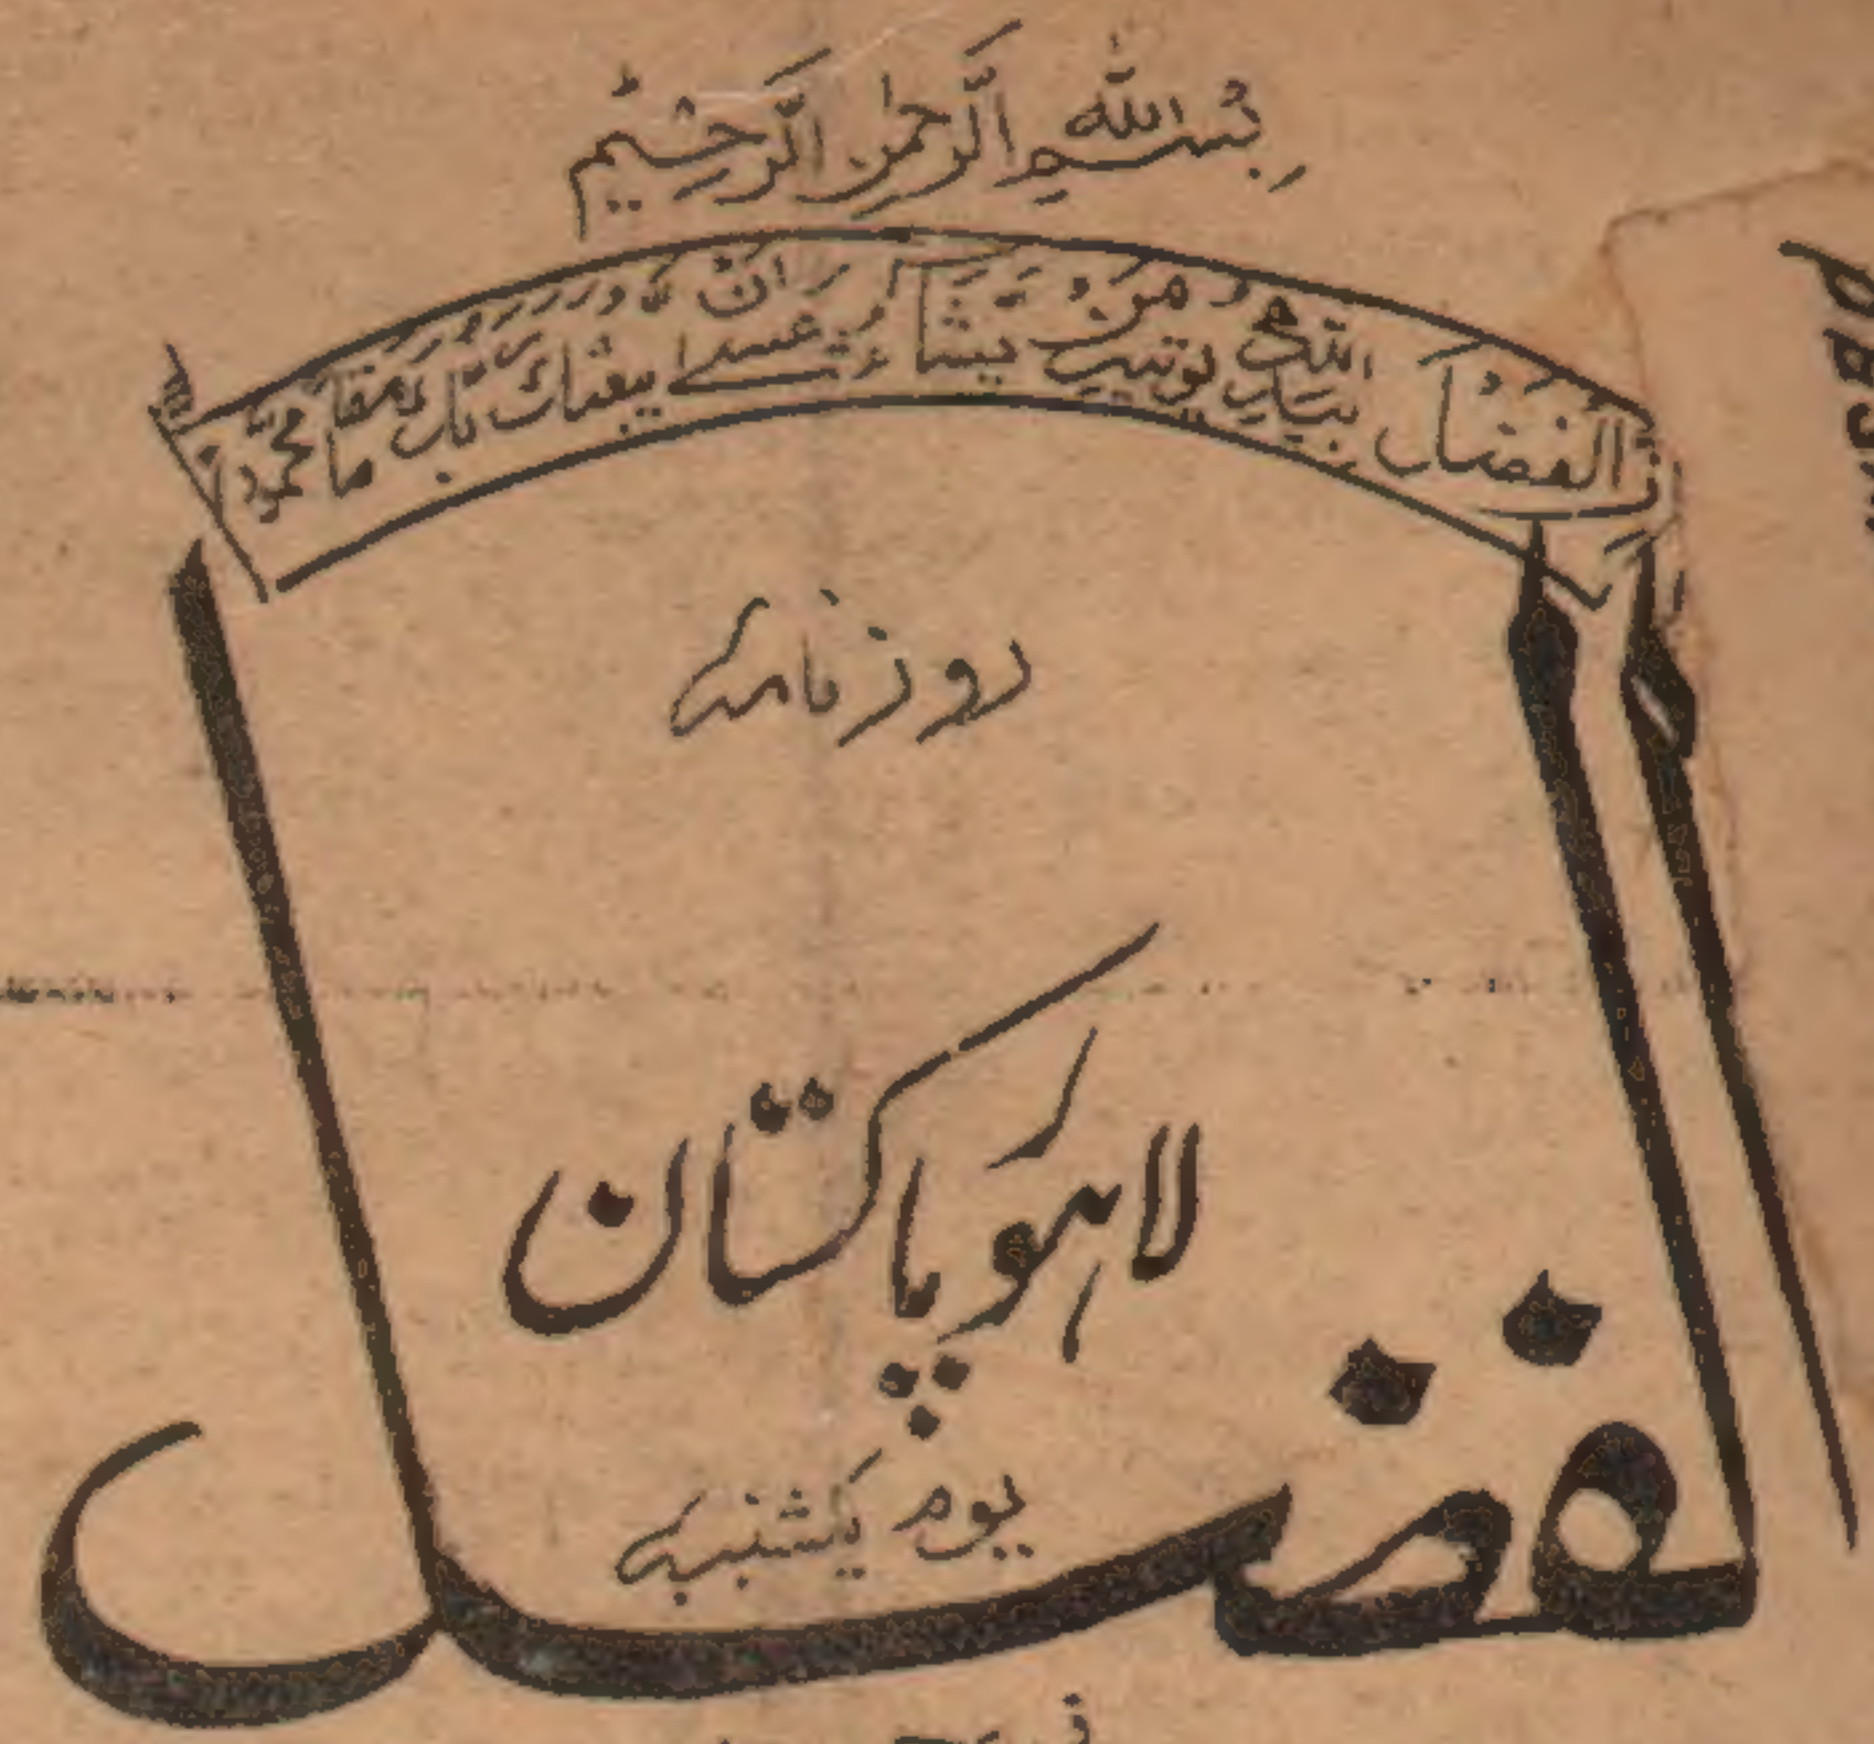 بِسْمِ اللهِ الرَّحْمٰنِ الرَّحِيْمِ
اِنَّ الْفَضْلَ بِيَدِ اللّٰهِ يُؤْتِيْهِ مَنْ يَّشَآءُ عَسٰى اَنْ يَّبْعَثَكَ رَبُّكَ مَقَامًا مَّحْمُوْدًا
روزنامہ
لاہور پاکستان
یوم یکشنبہ
الفضل